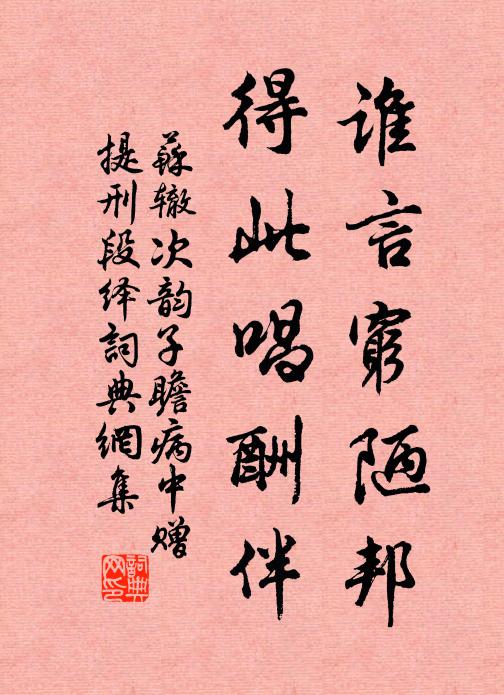 谁言穷陋邦
得此唱酬伴
苏辙次韵子瞻病中赠
提刑段绎词典网集
词典网印